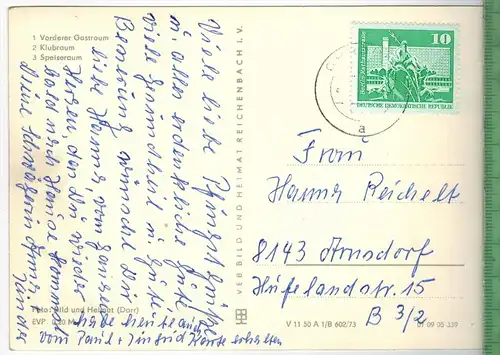 1 Vorderer Gastraum
2 Klubraum
3 Speiseraum
Viele liebe Pfingstgrüße
m. allen erdenkliche Gute
viele Gesundheit u. gute
Besserung wünscht Dir
liebe Hanna, von ganzem
Herzen, daß Du wieder
bald nach Hause kommst
Deine Schwägerin Anna
habe heute auch
vom Paul + Karte erhalten
Foto: Bild und Heimat (Darr)
EVP: 0,20 M
VEB BILD UND HEIMAT REICHENBACH I. V.
V 11 50 A 1/B 602/73
01 09 05 339
10
DEUTSCHE DEMOKRATISCHE REPUBLIK
a
Frau
Hanna Reichelt
8143 Arnsdorf
Hufelandstr. 15
B 3/2